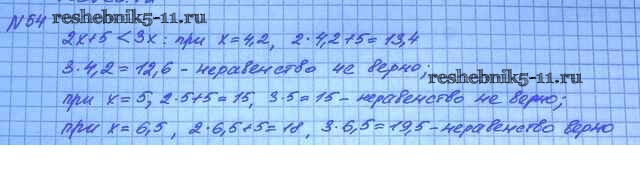 №54 reshebnik5-11.ru
2x+5<3x: при x=4,2, 2·4,2+5=13,4
3·4,2=12,6 - неравенство не верно;
reshebnik5-11.ru
при x=5, 2·5+5=15, 3·5=15 - неравенство не верно;
при x=6,5, 2·6,5+5=18, 3·6,5=19,5 - неравенство верно